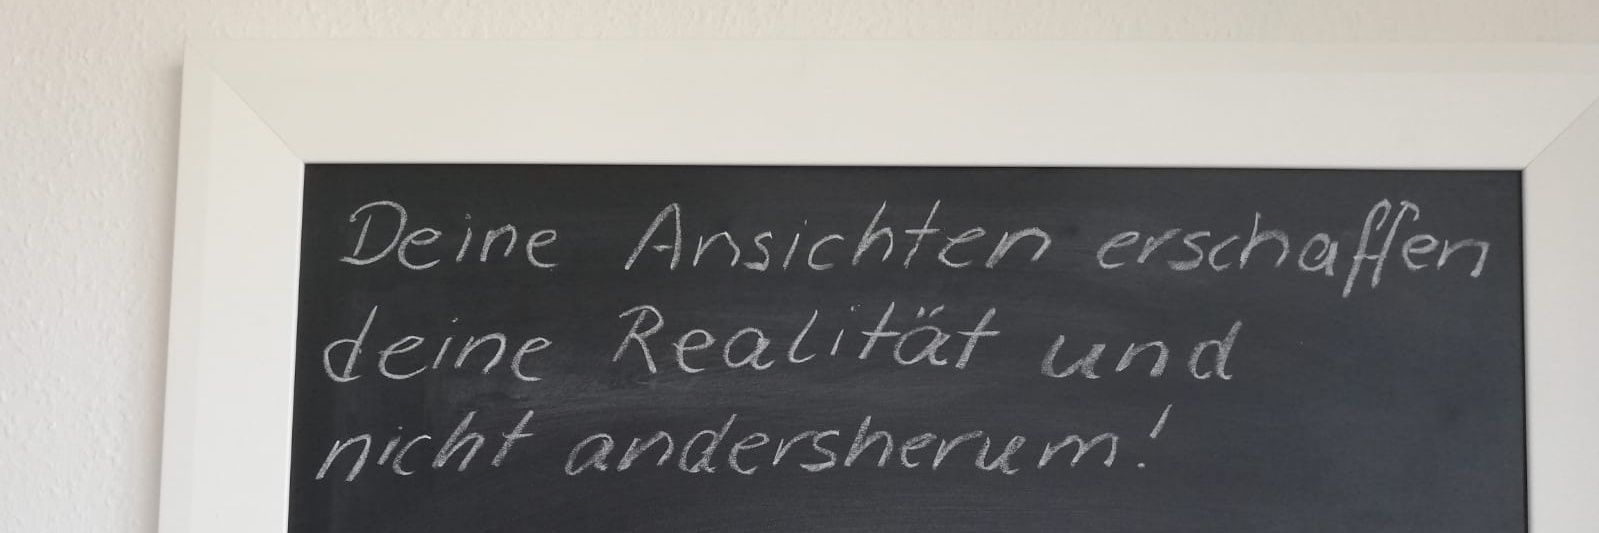 Deine Ansichten erschaffen
deine Realität und
nicht andersherum!